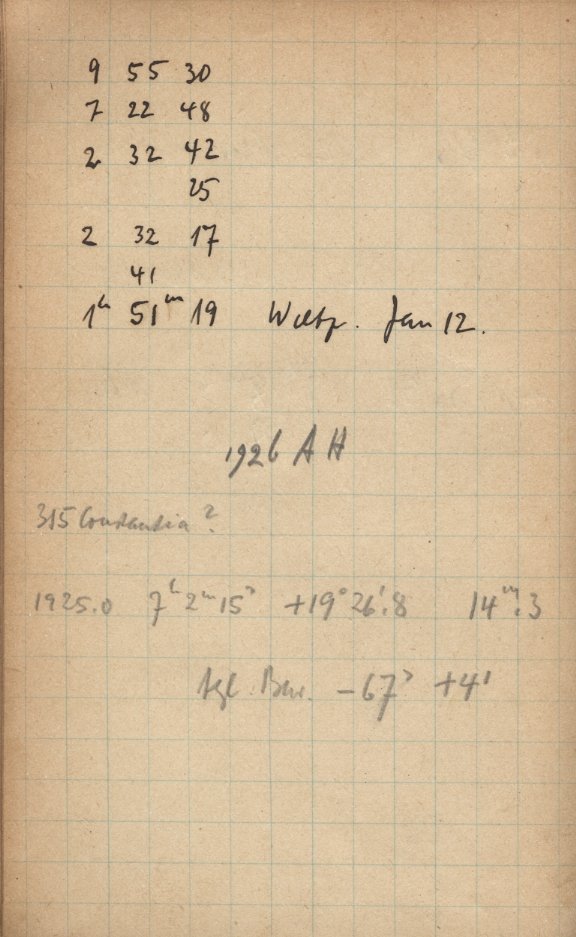 9 55 30
7 22 48
2 32 42
25
2 32 17
41
1ʰ 51ᵐ 19 Weltz. Jan 12.
1926 AH
315 Constantia?
1925.0 7ʰ 2ᵐ 15ˢ +19° 26'.8 14ᵐ.3
tgl. Bew. –67ˢ +4'